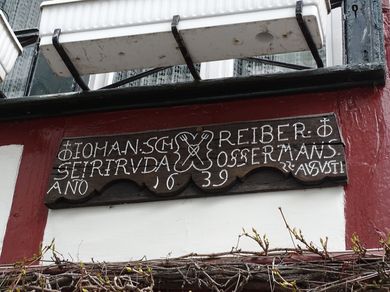 IOHAN·SCH REIBER·
SEIRIRVDA OSSERMANS
ANO 1639 22 AVGVSTI